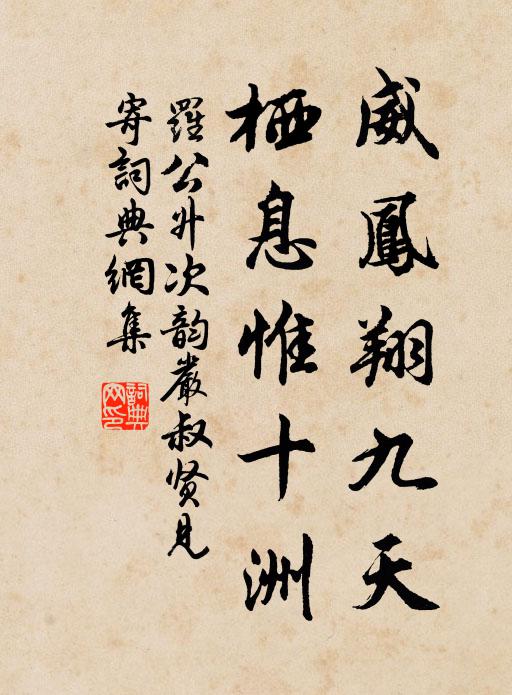 威鳳翔九天
栖息惟十洲
羅公升次韵嚴叔贤見
寄詞典網集
詞典网印